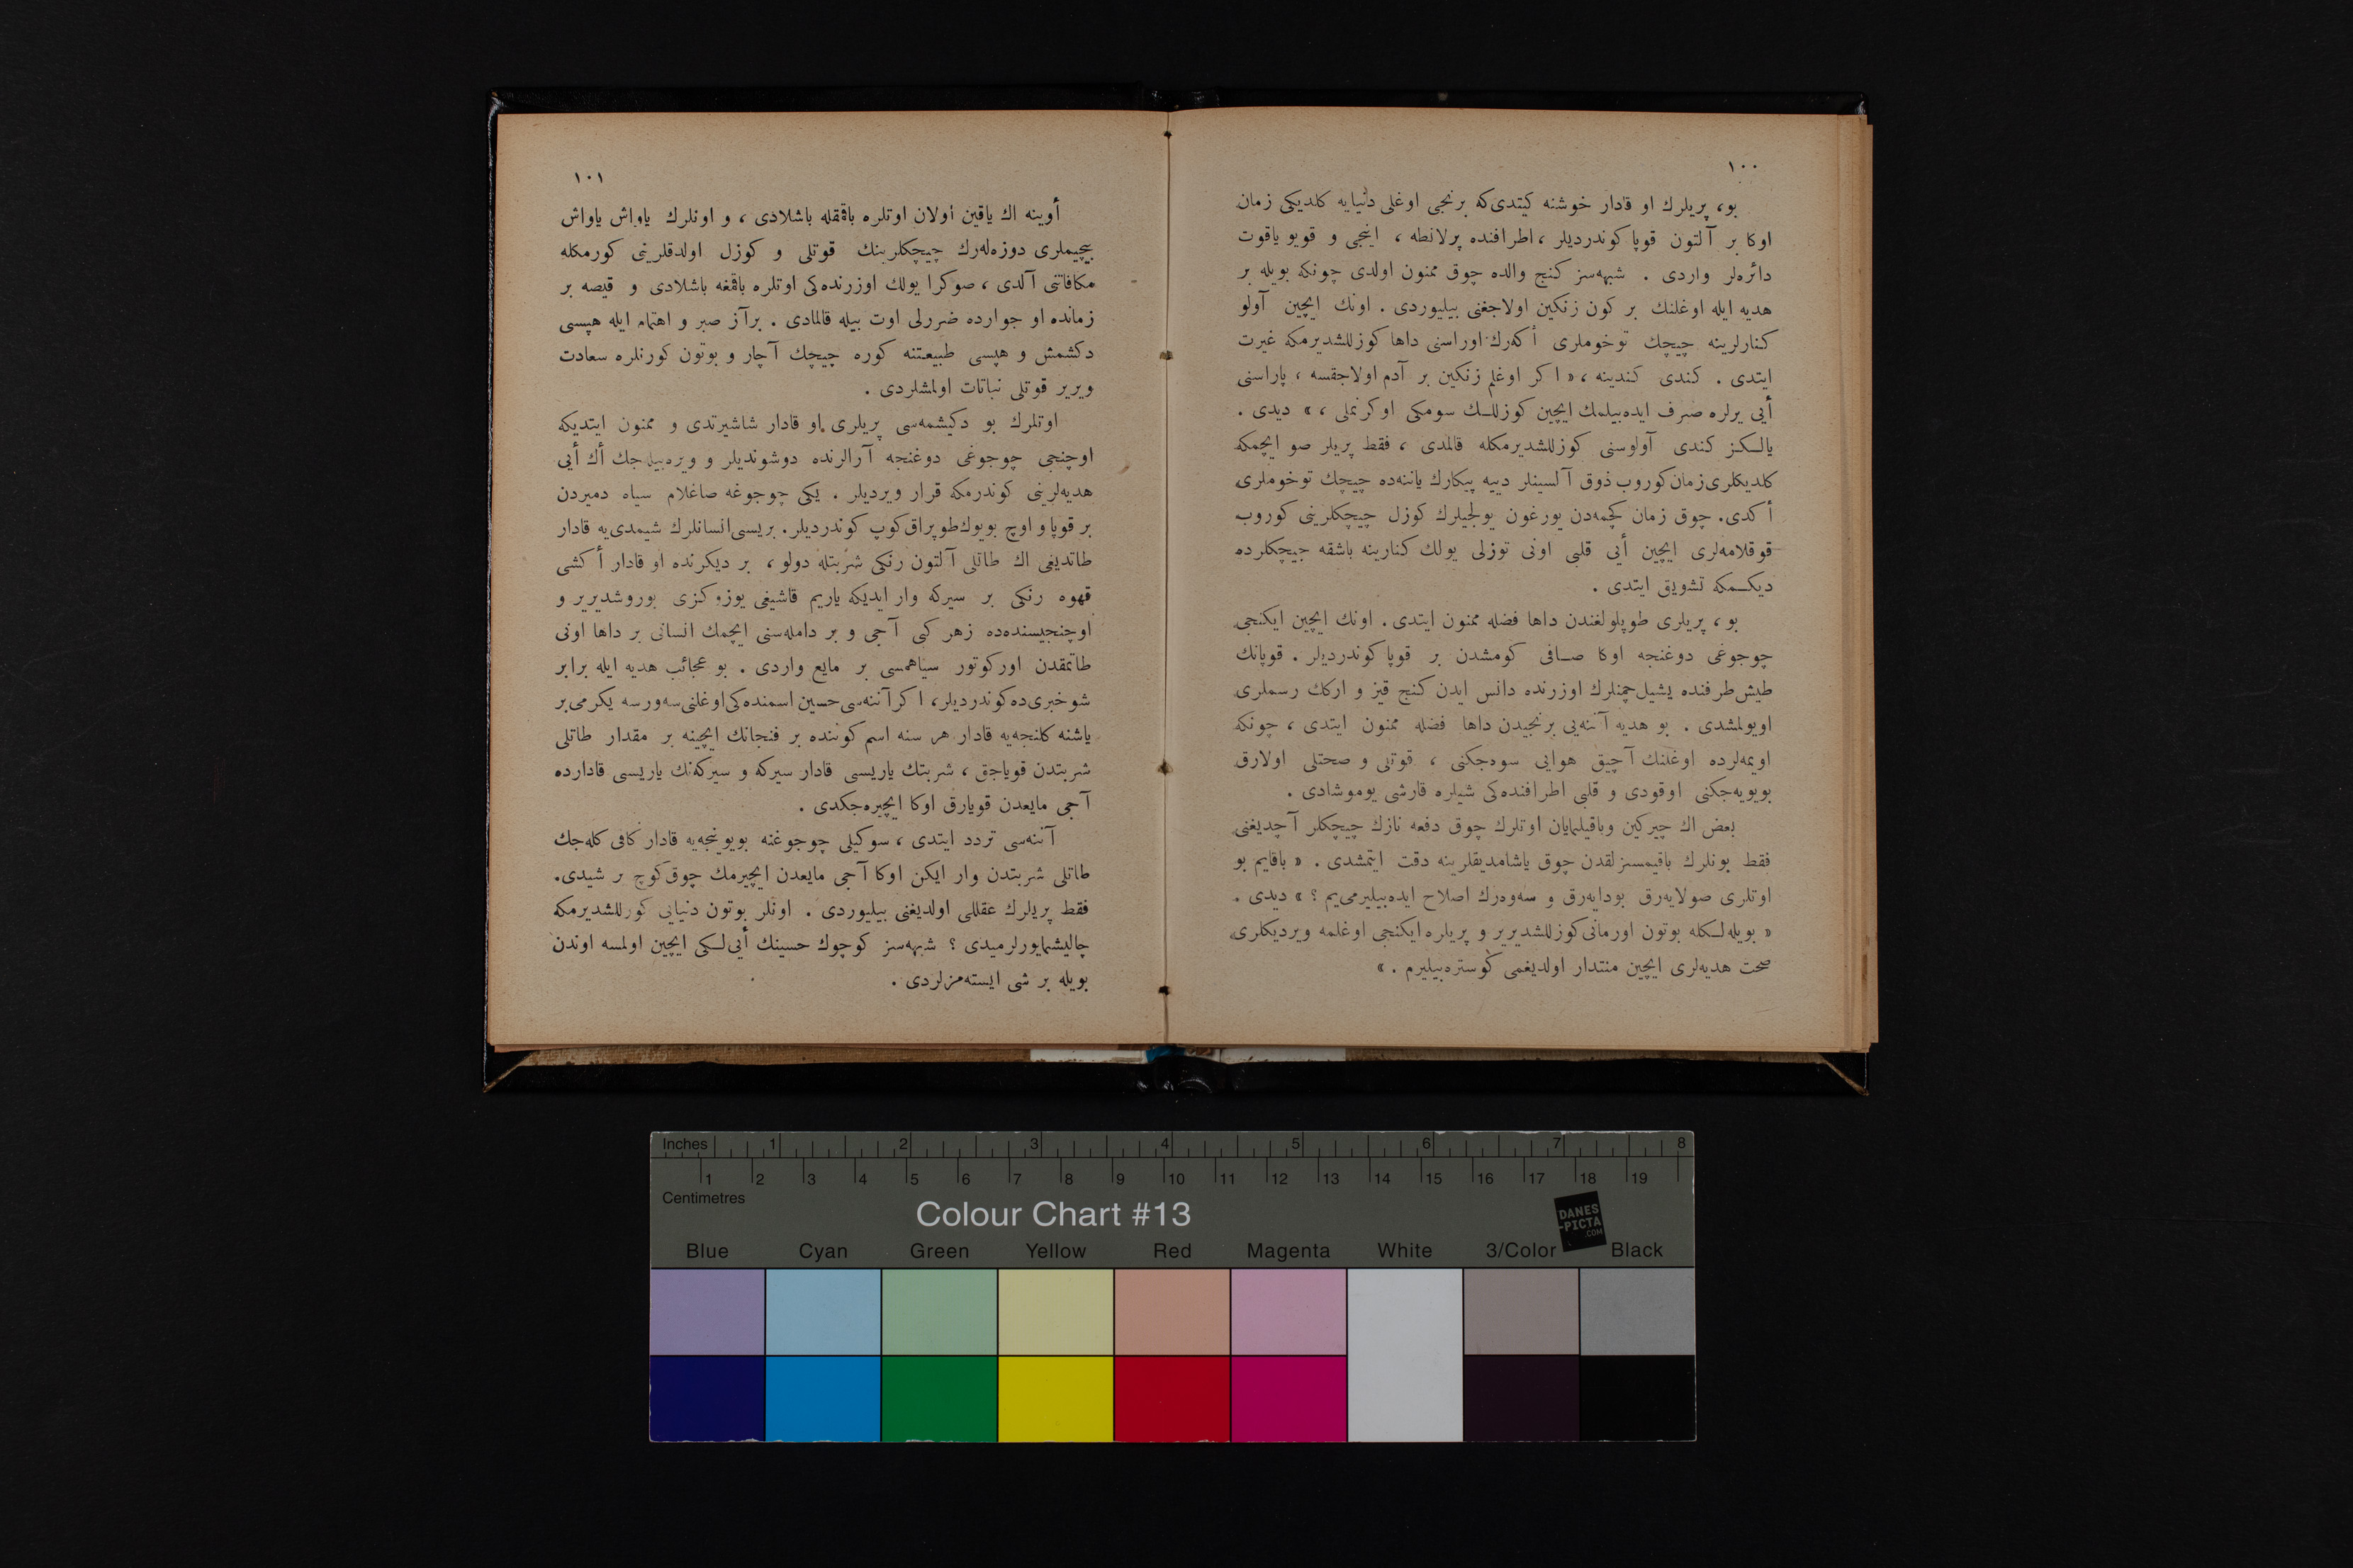 ١٠٠
بو، پريلرك او قادار خوشنه كيتدى‌كه برنجى اوغلى دنيايه كلديكى زمان
اوكا بر آلتون قوپا كوندرديلر ، اطرافنده پرلانطه ، اينجى و قويو ياقوت
دائره‌لر واردى . شبهه‌سز كنج والده چوق ممنون اولدى چونكه بويله بر
هديه ايله اوغلنك بر كون زنكين اولاجغنى بيليوردى . اونك ايچين آولو
كنارلرينه چيچك توخوملرى أكه‌رك اوراسنى داها كوزللشديرمكه غيرت
ايتدى . كندى كندينه ، « اكر اوغلم زنكين بر آدم اولاجقسه ، پاراسنى
أيى يرلره صرف ايده‌بيلمك ايچين كوزللـك سومكى اوكرنملى ، » ديدى .
يالـكـز كندى آولوسنى كوزللشديرمكله قالمدى ، فقط پريلر صو ايچمكه
كلديكلرى زمان كوروب ذوق آلسينلر دييه پيكارك ياننه‌ده چيچك توخوملرى
أكدى. چوق زمان كچمه‌دن يورغون يولجيلرك كوزل چيچكلرينى كوروب
قوقلامه‌لرى ايچين أيى قلبى اونى توزلى يولك كنارينه باشقه چيچكلرده
ديكـمكه تشويق ايتدى .
بو ، پريلرى طوپلولغندن داها فضله ممنون ايتدى . اونك ايچين ايكنجى
چوجوغى دوغنجه اوكا صـافى كومشدن بر قوپا كوندرديلر . قوپانك
طيش طرفنده يشيل چمنلرك اوزرنده دانس ايدن كنج قيز و اركك رسملرى
اويولمشدى . بو هديه آننه‌يى برنجيدن داها فضله ممنون ايتدى ، چونكه
اويمه‌لرده اوغلنك آچيق هوايى سوه‌جكنى ، قوتلى و صحتلى اولارق
بويويه‌جكنى اوقودى و قلبى اطرافنده‌كى شيلره قارشى يوموشادى .
بعض اك چيركين وباقيلمايان اوتلرك چوق دفعه نازك چيچكلر آچديغنى
فقط بونلرك باقيمسزلقدن چوق ياشامديقلرينه دقت ايتمشدى . « باقايم بو
اوتلرى صولايه‌رق بودايه‌رق و سه‌وه‌رك اصلاح ايده‌بيليرمى‌يم ؟ » ديدى .
« بويله‌لـكله بوتون اورمانى كوزللشديرير و پريلره ايكنجى اوغلمه ويرديكلرى
صحت هديه‌لرى ايچين منتدار اولديغمى كوستره‌بيليرم . »
١٠١
أوينه اك ياقين اولان اوتلره باقمقله باشلادى ، و اونلرك ياواش ياواش
بيچيملرى دوزه‌له‌رك چيچكلرينك قوتلى و كوزل اولدقلرينى كورمكله
مكافاتنى آلدى ، صوكرا يولك اوزرنده‌كى اوتلره باقمغه باشلادى و قيصه بر
زمانده او جوارده ضررلى اوت بيله قالمادى . برآز صبر و اهتمام ايله هپسى
دكشمش و هپسى طبيعتنه كوره چيچك آچار و بوتون كورنلره سعادت
ويرير قوتلى نباتات اولمشلردى .
اوتلرك بو دكيشمه‌سى پريلرى او قادار شاشيرتدى و ممنون ايتديكه
اوچنجى چوجوغى دوغنجه آرالرنده دوشونديلر و ويره‌بيله‌جك أك أيى
هديه‌لرينى كوندرمكه قرار ويرديلر . يكى چوجوغه صاغلام سياه دميردن
بر قوپا و اوچ بويوك طوپراق كوپ كوندرديلر. بريسى انسانلرك شيمدى‌يه قادار
طاتديغى اك طاتلى آلتون رنكى شربتله دولو ، بر ديكرنده او قادار أكشى
قهوه رنكى بر سيركه وار ايديكه ياريم قاشيغى يوزو كزى بوروشديرير و
اوچنجيسنده‌ده زهر كبى آجى و بر دامله‌سنى ايچمك انسانى بر داها اونى
طاتمقدن اوركوتور سياهمسى بر مايع واردى . بو عجائب هديه ايله برابر
شو خبرى‌ده كوندرديلر، اكر آننه‌سى حسين اسمنده‌كى اوغلنى سه‌ورسه يكرمى بر
ياشنه كلنجه‌يه قادار هر سنه اسم كوننده بر فنجانك ايچينه بر مقدار طاتلى
شربتدن قوياجق ، شربتك ياريسى قادار سيركه و سيركه‌نك ياريسى قادارده
آجى مايعدن قويارق اوكا ايچيره‌جكدى .
آننه‌سى تردد ايتدى ، سوكيلى چوجوغنه بويونجه‌يه قادار كافى كله‌جك
طاتلى شربتدن وار ايكن اوكا آجى مايعدن ايچيرمك چوق كوچ بر شيدى.
فقط پريلرك عقللى اولديغنى بيليوردى . اونلر بوتون دنيايى كوزللشديرمكه
چاليشمايورلرميدى ؟ شبهه‌سز كوچوك حسينك أيى‌لـكى ايچين اولمسه اوندن
بويله بر شى ايسته‌مزلردى .
Inches 1 2 3 4 5 6 7 8
1 2 3 4 5 6 7 8 9 10 11 12 13 14 15 16 17 18 19
Centimetres
Colour Chart #13
DANES
-PICTA
.COM
Blue Cyan Green Yellow Red Magenta White 3/Color Black